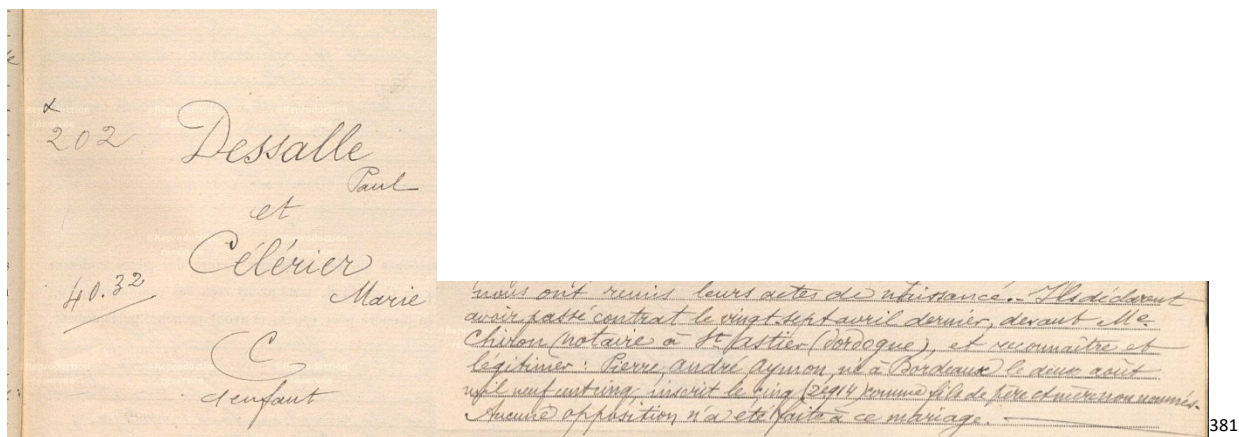 202
Dessalle
Paul
et
Célérier
40.32
Marie
C
1 enfant
nous ont remis leurs actes de naissance. - Ils déclarent
avoir passé contrat le vingt sept avril dernier, devant Me
Chiron (notaire à St Astier (Dordogne), et reconnaître et
légitimer : Pierre, André Aymon, né à Bordeaux le deux août
mil neuf cent cinq, inscrit le cinq comme fils de père et mère non nommés.
Aucune opposition n'a été faite à ce mariage.
381